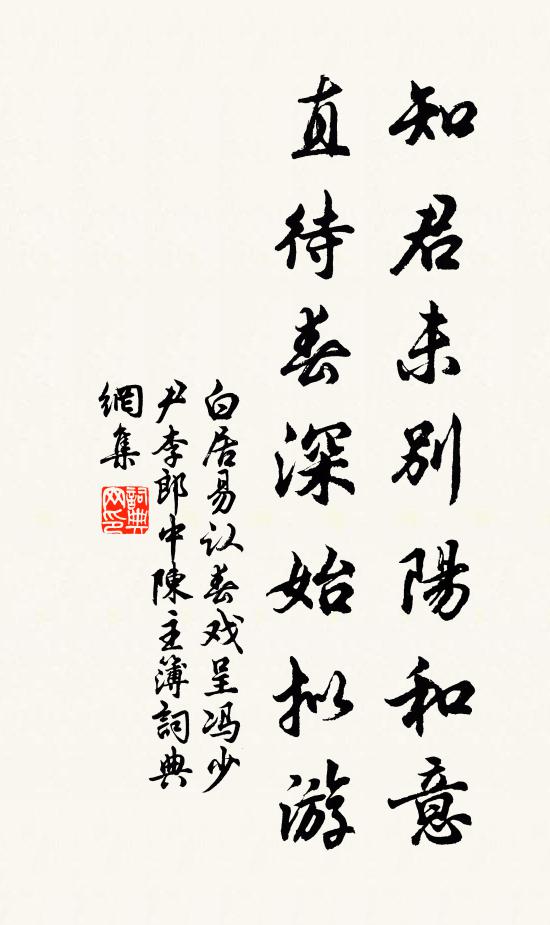 知君未別陽和意
直待春深始拟游
白居易认春戏呈冯少
尹李郎中陳主簿詞典
網集
詞典
网印